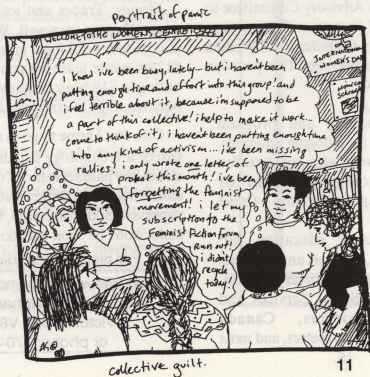 Advisory Committee
portrait of panic
WELCOME TO THE WOMEN'S CENTRE
INTERNATIONAL
WOMEN'S DAY
i know i've been busy, lately... but i haven't been
putting enough time and effort into this group! and
i feel terrible about it, because i'm supposed to be
a part of this collective! i help to make it work...
come to think of it, i haven't been putting enough time
into any kind of activism... i've been missing
rallies! i only wrote one letter of
protest this month! i've been
forgetting the feminist
movement! i let my
subscription to the
Feminist Fiction forum
run out!
i didn't
recycle
today!
Canada
and most
or phone
collective guilt.
11